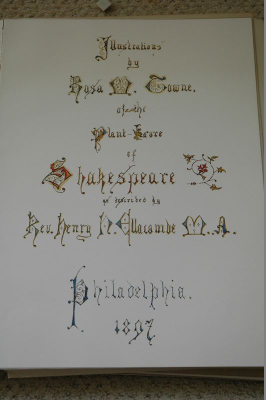 Illustrations
by
Rosa M. Towne.
of the
Plant-Lore
of
Shakespeare
as described by
Rev. Henry N. Ellacombe M.A.
Philadelphia.
1897